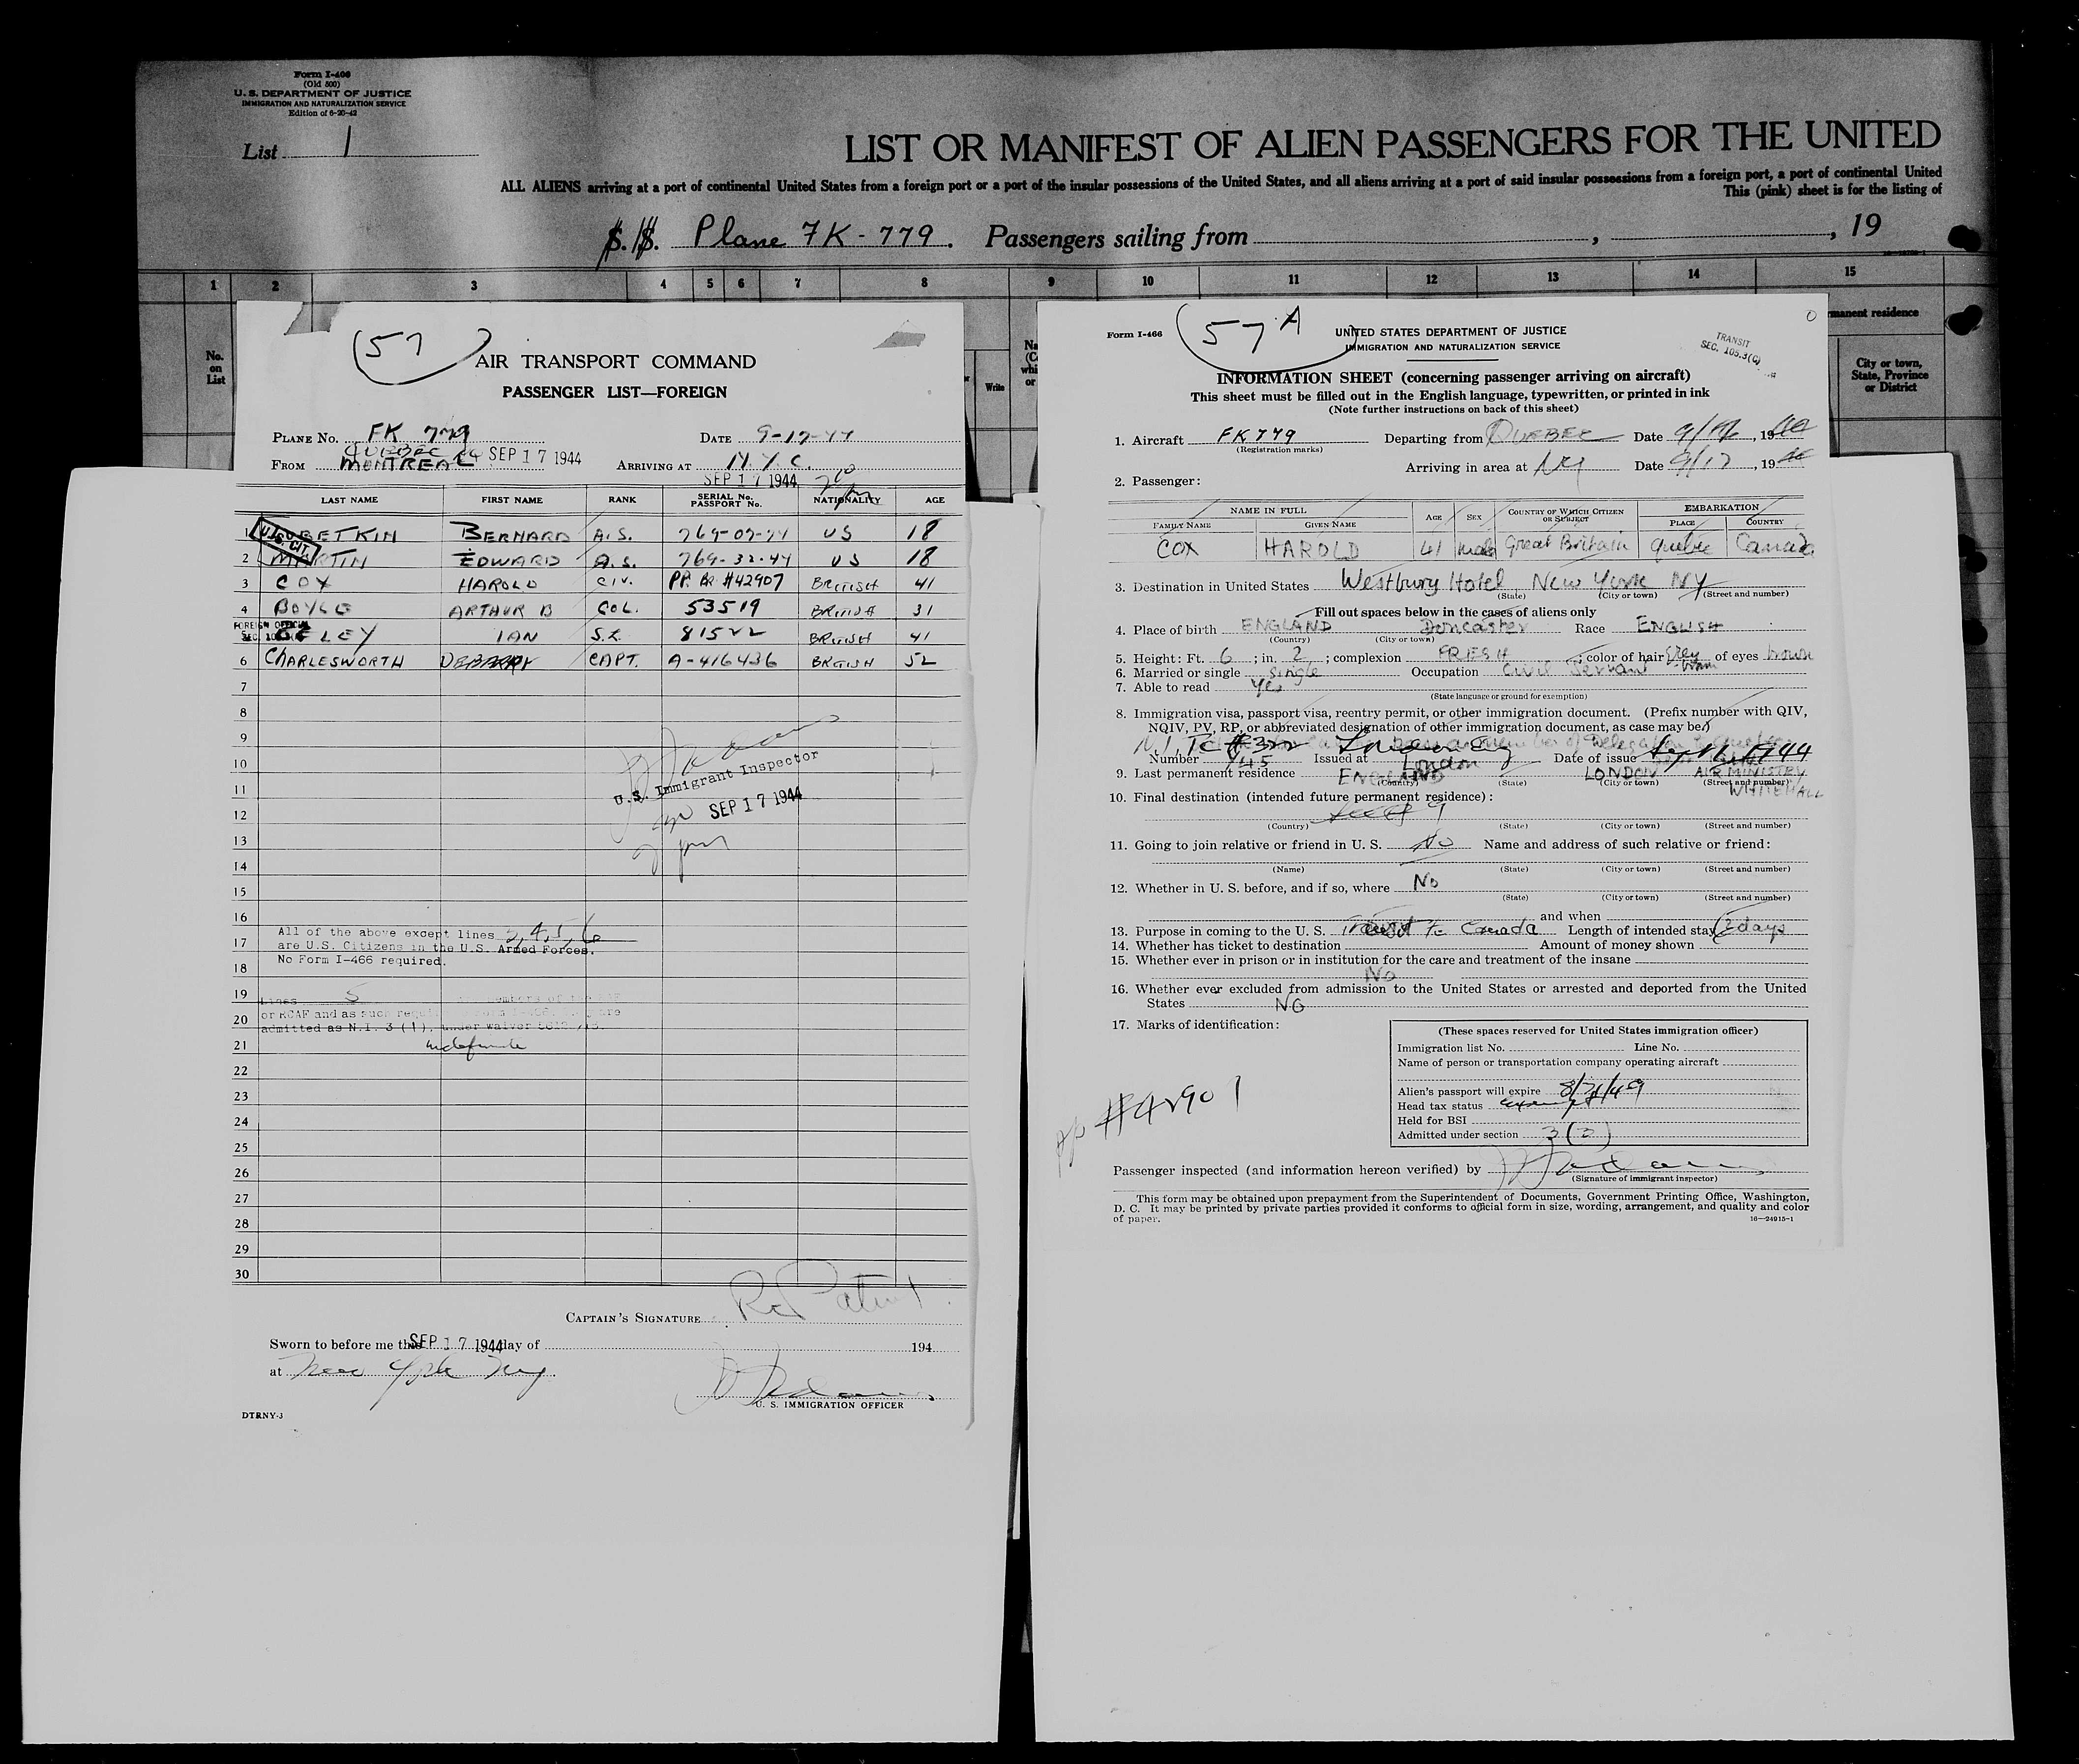 Form I-400
(Old 500)
U. S. DEPARTMENT OF JUSTICE
IMMIGRATION AND NATURALIZATION SERVICE
Edition of 6-20-42
List 1
LIST OR MANIFEST OF ALIEN PASSENGERS FOR THE UNITED
ALL ALIENS arriving at a port of continental United States from a foreign port or a port of the insular possessions of the United States, and all aliens arriving at a port of said insular possessions from a foreign port, a port of continental United
This (pink) sheet is for the listing of
S. S. Plane FK-779. Passengers sailing from , , 19
1 2 3 4 5 6 7 8 9 10 11 12 13 14 15
No. on List
Write
manent residence
City or town, State, Province or District
(57)
AIR TRANSPORT COMMAND
PASSENGER LIST—FOREIGN
PLANE No. FK 779 DATE 9-17-44
QUEBEC
FROM MONTREAL SEP 17 1944 ARRIVING AT N.Y.C.
SEP 17 1944
LAST NAME FIRST NAME RANK SERIAL No. PASSPORT No. NATIONALITY AGE
1 BETKIN BERNARD A.S. 769-07-74 US 18
U.S. CIT.
2 MARTIN EDWARD A.S. 769-32-44 US 18
3 COX HAROLD CIV. PP. BR #42907 BRITISH 41
4 BOYLE ARTHUR B COL. 53519 BRITISH 31
FOREIGN OFFICIAL
5 ELEY IAN S.L. 81522 BRITISH 41
6 CHARLESWORTH CAPT. A-416436 BRITISH 52
7
8
9
10
U.S. Immigrant Inspector
11
SEP 17 1944
12
13
14
15
16
All of the above except lines 3,4,5,6
17 are U.S. Citizens in the U.S. Armed Forces.
No Form I-466 required.
18
19 Lines 5 members of the RAF
or RCAF and as such
20 admitted as N.I. 3 (1), under waiver
21 indefinite
22
23
24
25
26
27
28
29
30
CAPTAIN'S SIGNATURE
Sworn to before me this SEP 17 1944 day of 194
at New York NY
U. S. IMMIGRATION OFFICER
DTRNY-3
Form I-466
57 A
UNITED STATES DEPARTMENT OF JUSTICE
IMMIGRATION AND NATURALIZATION SERVICE
TRANSIT
SEC. 105.3(C)
INFORMATION SHEET (concerning passenger arriving on aircraft)
This sheet must be filled out in the English language, typewritten, or printed in ink
(Note further instructions on back of this sheet)
1. Aircraft FK779 Departing from QUEBEC Date 9/17, 19
(Registration marks)
Arriving in area at NY Date 9/17, 19
2. Passenger:
NAME IN FULL AGE SEX COUNTRY OF WHICH CITIZEN OR SUBJECT EMBARKATION
FAMILY NAME GIVEN NAME PLACE COUNTRY
COX HAROLD 41 Male Great Britain Quebec Canada
3. Destination in United States Westbury Hotel New York NY
(State) (City or town) (Street and number)
Fill out spaces below in the cases of aliens only
4. Place of birth ENGLAND Doncaster Race ENGLISH
(Country) (City or town)
5. Height: Ft. 6; in. 2; complexion FRESH; color of hair Grey of eyes brown
6. Married or single Single Occupation Civil Servant
7. Able to read Yes
(State language or ground for exemption)
8. Immigration visa, passport visa, reentry permit, or other immigration document. (Prefix number with QIV,
NQIV, PV, RP, or abbreviated designation of other immigration document, as case may be.)
Number Issued at London Date of issue
9. Last permanent residence ENGLAND LONDON AIR MINISTRY
(Country) (State) (City or town) (Street and number)
WHITEHALL
10. Final destination (intended future permanent residence):
(Country) (State) (City or town) (Street and number)
11. Going to join relative or friend in U. S. No Name and address of such relative or friend:
(Name) (State) (City or town) (Street and number)
12. Whether in U. S. before, and if so, where No
(State) (City or town) (Street and number)
and when
13. Purpose in coming to the U. S. Transit to Canada Length of intended stay 2 days
14. Whether has ticket to destination Amount of money shown
15. Whether ever in prison or in institution for the care and treatment of the insane
No
16. Whether ever excluded from admission to the United States or arrested and deported from the United
States NO
17. Marks of identification:
(These spaces reserved for United States immigration officer)
Immigration list No. Line No.
Name of person or transportation company operating aircraft
Alien's passport will expire 8/31/49
Head tax status
Held for BSI
Admitted under section 3(2)
PP #42907
Passenger inspected (and information hereon verified) by
(Signature of immigrant inspector)
This form may be obtained upon prepayment from the Superintendent of Documents, Government Printing Office, Washington,
D. C. It may be printed by private parties provided it conforms to official form in size, wording, arrangement, and quality and color
of paper. 16—24915-1